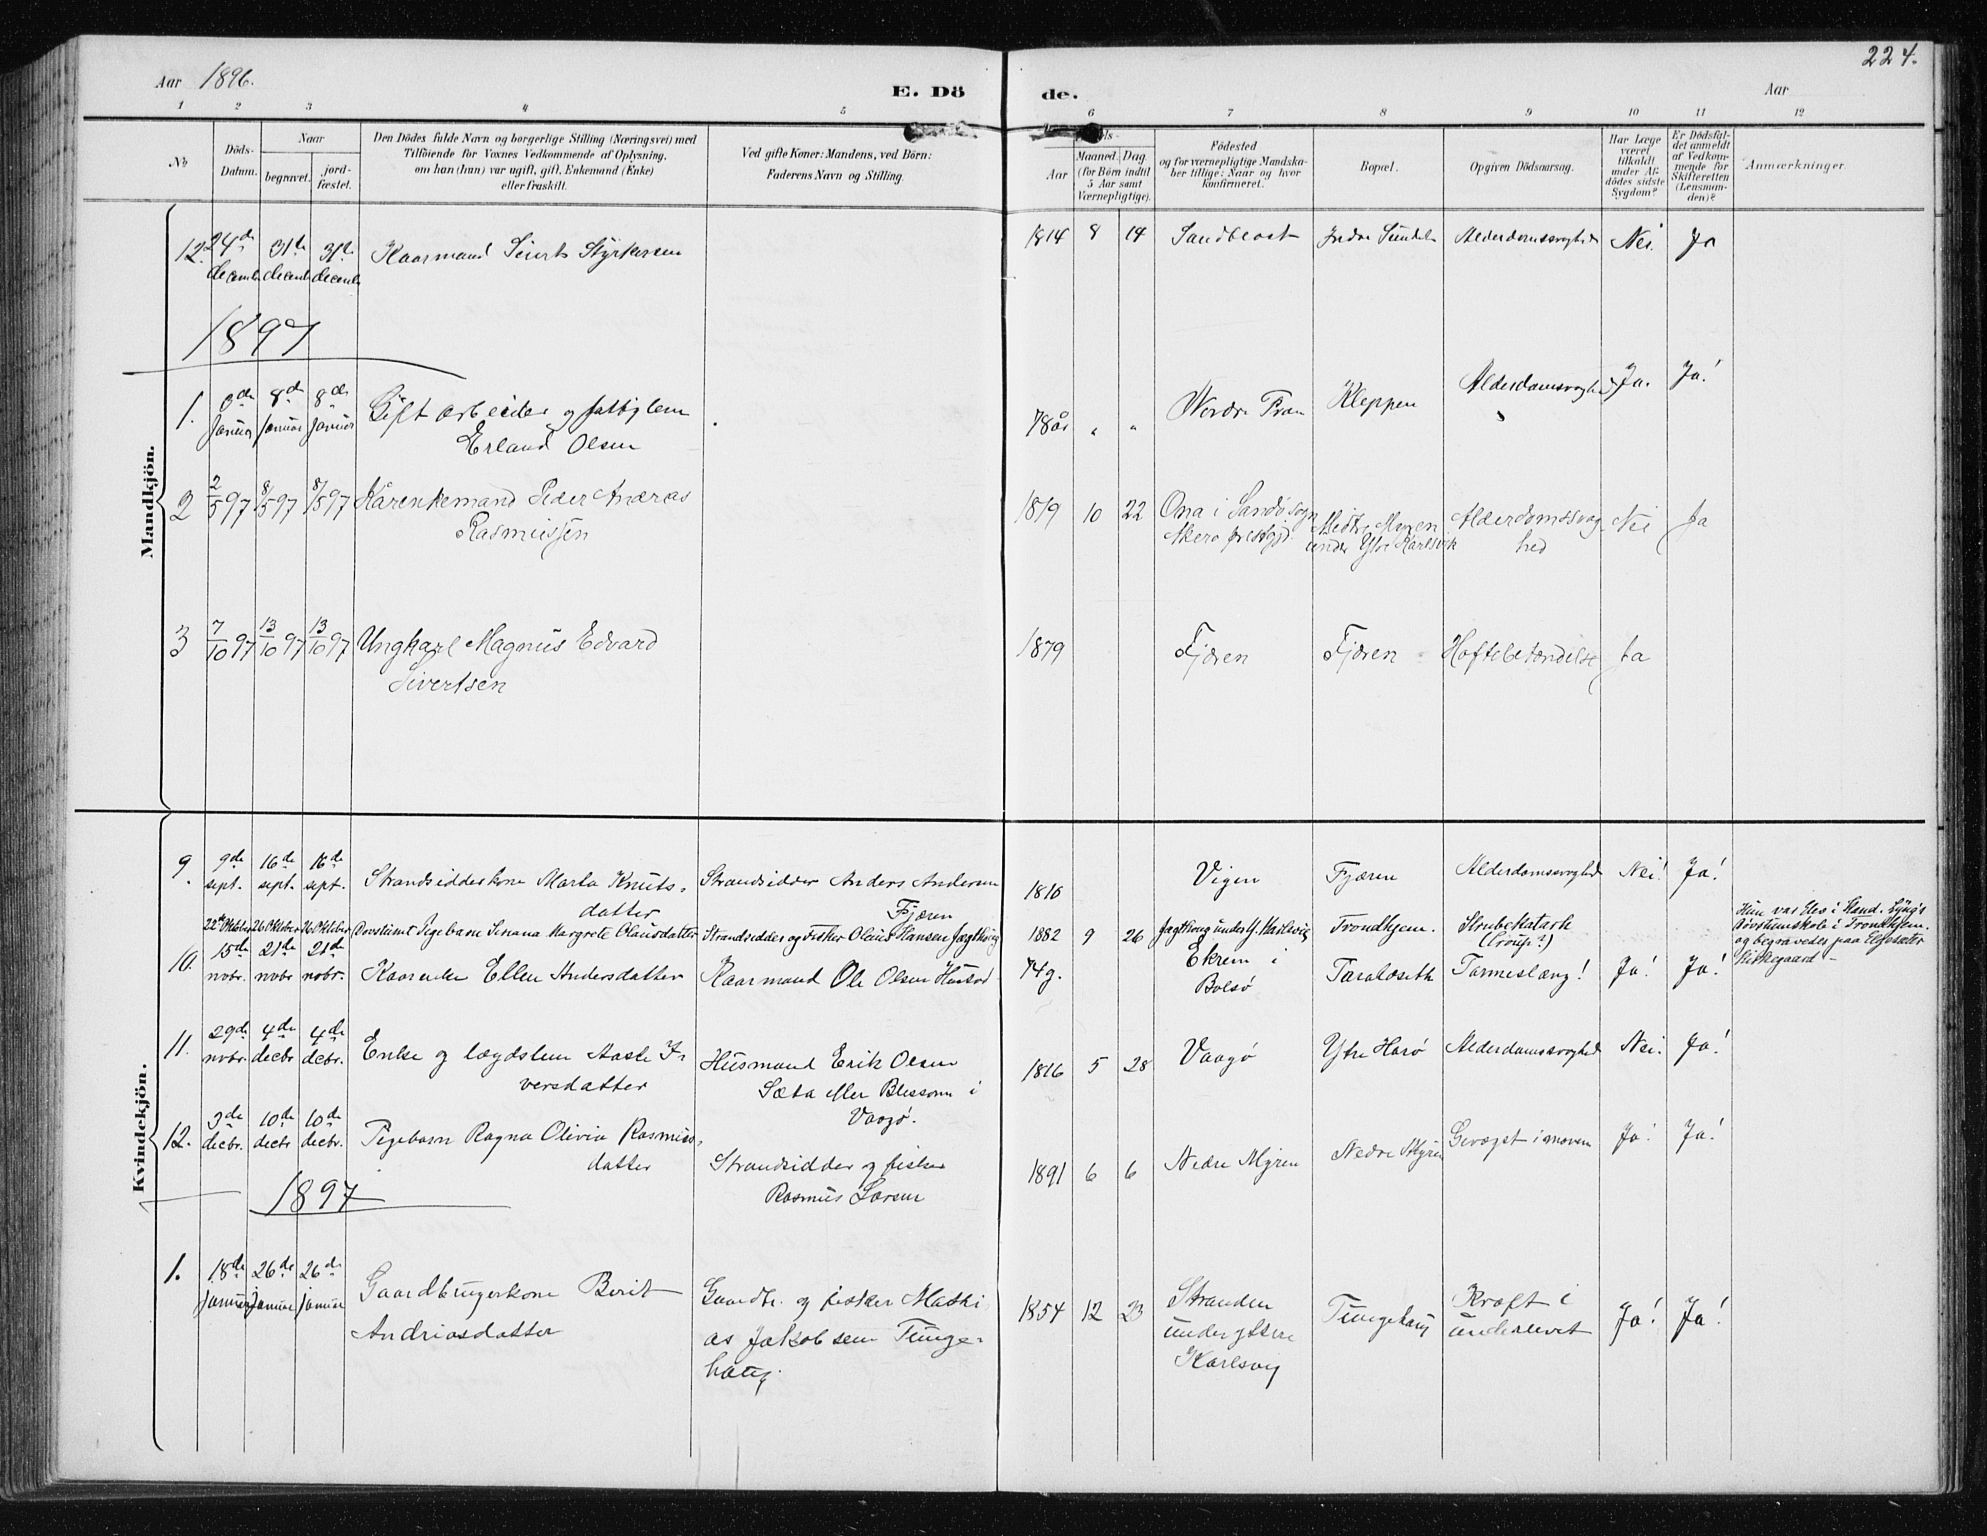 Aar 1896.
E. Dö
de.
Aar
224.
1 2 3 4 5 6 7 8 9 10 11 12
No
Döds-Datum.
Naar
begravet.
jord-fæstet.
Den Dödes fulde Navn og borgerlige Stilling (Næringsvei) med
Tilföiende for Voxnes Vedkommende af Oplysning,
om han (hun) var ugift, gift, Enkemand (Enke)
eller fraskilt.
Ved gifte Koner: Mandens, ved Börn:
Faderens Navn og Stilling.
Aar
Maaned. Dag
(for Börn indtil
5 Aar samt
Værnepligtige).
Födested
og for værnepligtige Mandska-
ber tillige: Naar og hvor
konfirmeret.
Bopæl.
Opgiven Dödsaarsag.
Har Læge
været
tilkaldt
under Af-
dödes sidste
Sygdom?
Er Dödsfal-
det anmeldt
af Vedkom-
mende for
Skifteretten
(Lensman-
den)?
Anmærkninger.
Mandkjön.
12. 24de decemb. 31te decemb. 31te decemb. Kaarmand Siurt Styrkersen 1814 8 14 Sandblost Indre Sundet Alderdomssvaghed Nei. Ja
1897
1. januar 8de januar 8de januar Gift arbeider og fattiglem
Erland Olsen
78år " " Nordre Fron Kleppen Alderdomssvaghed Ja. Ja!
2 2/5 97 8/5 97 8/5 97 Kårenkemand Peder Andreas
Rasmussen
1819 10 22 Ona i Sandö sogn
Akerø prestgjd.
Midtre Myren
under Ytre Karlsvik
Alderdomssvag-
hed
Nei Ja
3 7/10 97 13/10 97 13/10 97 Ungkarl Magnus Edvard
Sivertsen
1879 Fjæren Fjæren Hoftebetændelse Ja
Kvindekjön.
9. 9de sept. 16de sept. 16de sept. Strandsidderkone Marta Knuts-
datter
Strandsidder Anders Andersen
Fjæren
1816 Vigen Fjæren Alderdomssvaghed Nei! Ja!
22de Oktober 26 Oktober 26 Oktober Dovstumt Pigebarn Sinana Margrete Olausdatter Strandsidder og Fisker Olaus Hansen Jægthaug 1882 9 26 Jagthaug under Y. Karlsvig Trondhjem. Strubekatarh
(Croup?)
Hun var Elev i Hand. Lyng's
Døvstumskole i Trondhjem.
og begravedes paa Elgesæter
Kirkegaard -
10. 15de novbr. 21de novbr 21de novbr. Kaarenke Ellen Andersdatter Kaarmand Ole Olsen Hustad 74g. Ekrem i
Bolsø
Taralseth Tarmeslæng! Ja! Ja!
11. 29de novbr. 4de decbr 4de decbr. Enke og lægdslem Aaste I-
versdatter
Husmand Erik Olsen
Sæta eller Blessom i
Vaagø.
1816 5 28 Vaagø Ytre Harø Alderdomssvaghed Nei. Ja!
12. 3de decbr. 10de decbr 10de decbr. Pigebarn Ragna Olivia Rasmus-
datter
Strandsidder og fisker
Rasmus Larsen
1891 6 6 Nedre Myren Nedre Myren Gevægst i maven Ja! Ja!
1897
1. 18de januar 26de januar 26de januar Gaardbrugerkone Berit
Andriasdatter
Gaardbr. og fisker Mathi-
as Jakobsen Tunge-
haug.
1854 12 23 Stranden
under ytere
Karlsvig
Tungehaug Kræft i
underlivet
Ja! Ja!